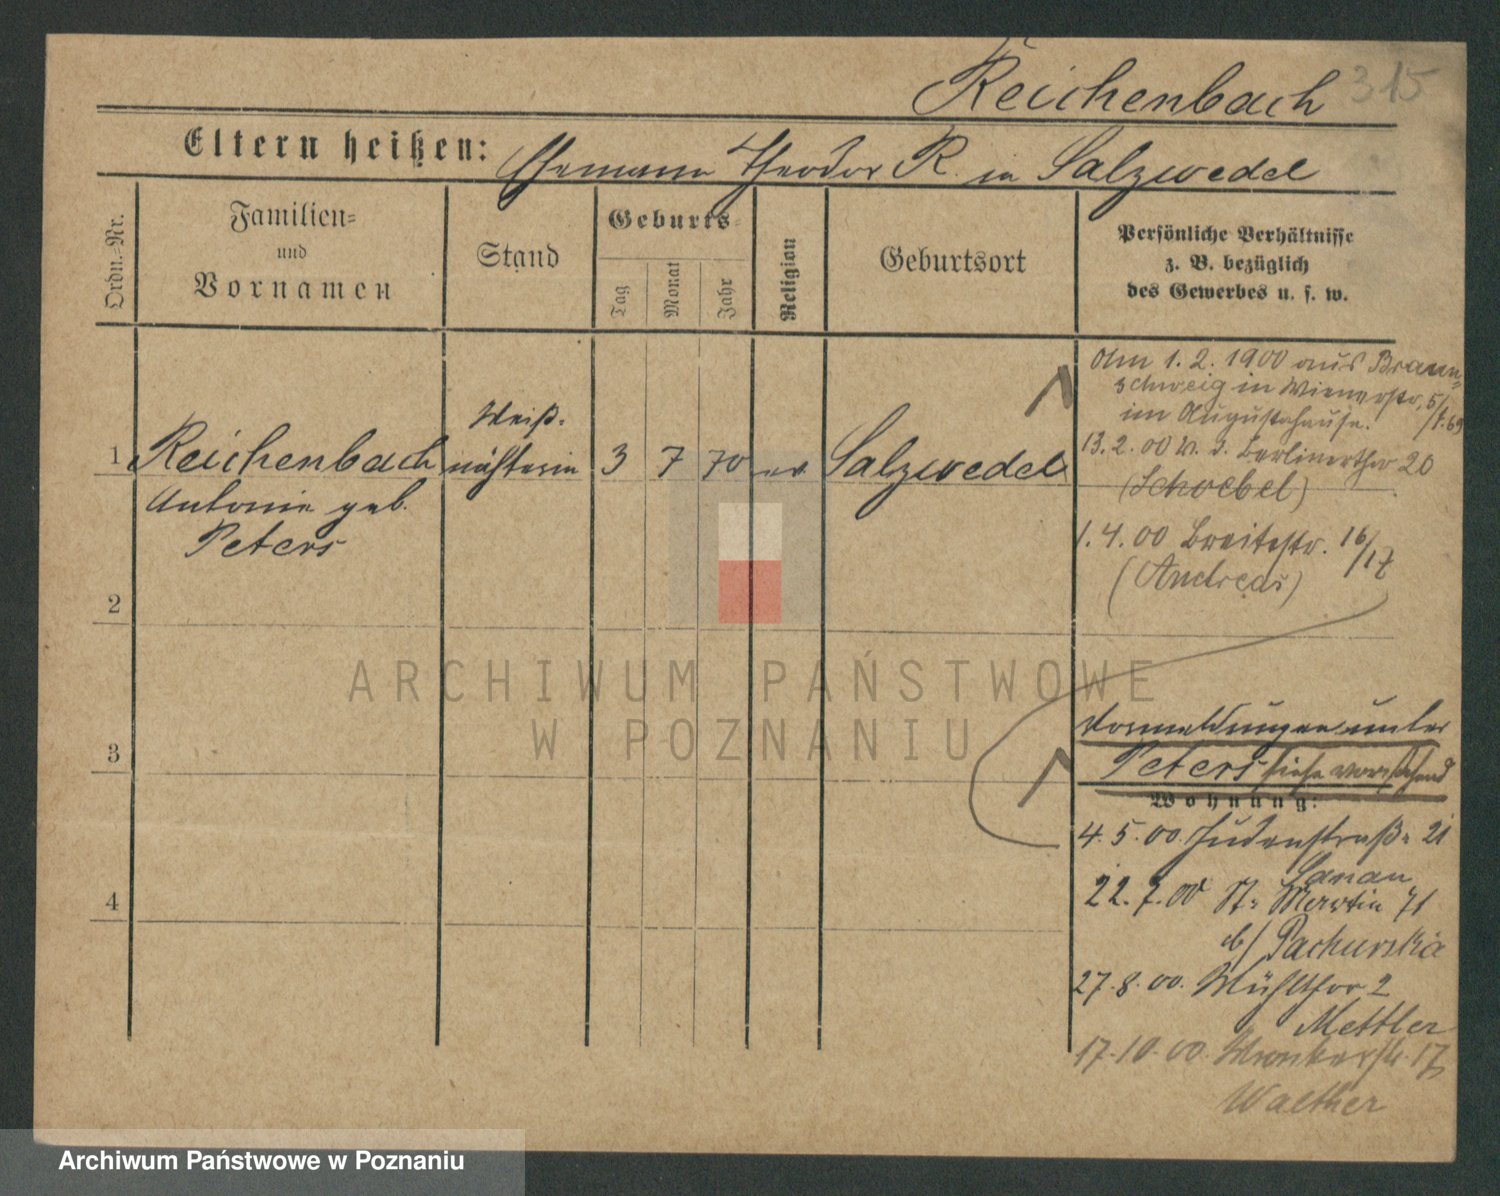 Reichenbach 315
Eltern heißen: Ehemann Theodor R. in Salzwedel
Ordn.-Nr.
Familien-
und
Vornamen
Stand
Geburts-
Tag
Monat
Jahr
Religion
Geburtsort
Persönliche Verhältnisse
z. B. bezüglich
des Gewerbes u. s. w.
Am 1. 2. 1900 aus Braun-
schweig in Wienerstr. 5/
im Augustahause.
13. 2. 00 Berlinerthor 20
(Schoebel)
1. 4. 00 Breitestr. 16/17
(Andreas)
Weiß-
1 Reichenbach nähterin 3 7 70 ev. Salzwedel
Antonie geb.
Peters
2
3
4
Vormeldungen unter
Peters siehe vorstehend
Wohnung:
4. 5. 00. Judenstraße 21
22. 7. 00 St. Martin 71
b/ Pachurska
27. 8. 00. Mühlthor 2
Mettler
17. 10. 00. Wronkerstr. 17
Walther
ARCHIWUM PAŃSTWOWE
W POZNANIU
Archiwum Państwowe w Poznaniu